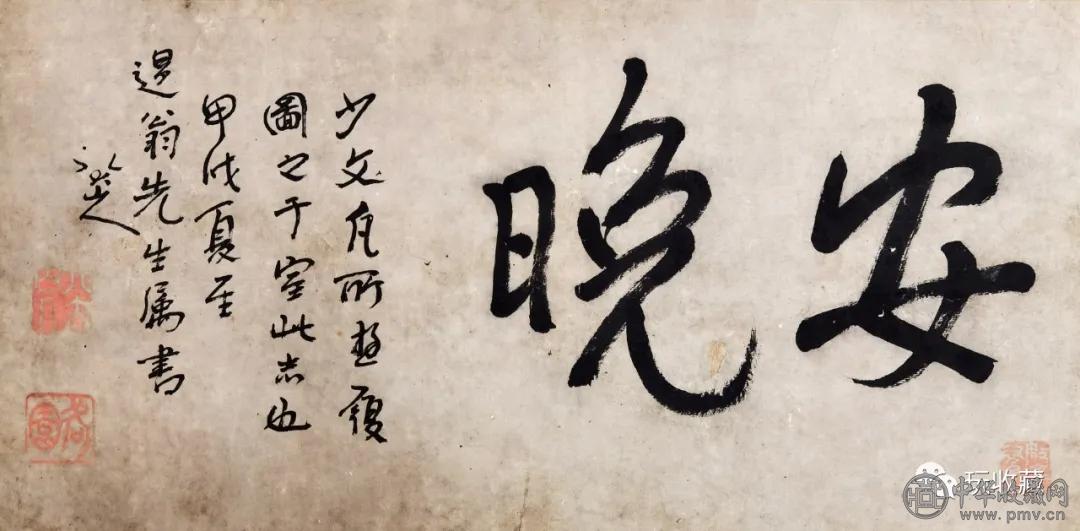 安晚
少文凡所遊履
圖之于室此志也
甲戌夏至
退翁先生属書
八大山人
玩收藏
中华收藏网
www.pmv.cn